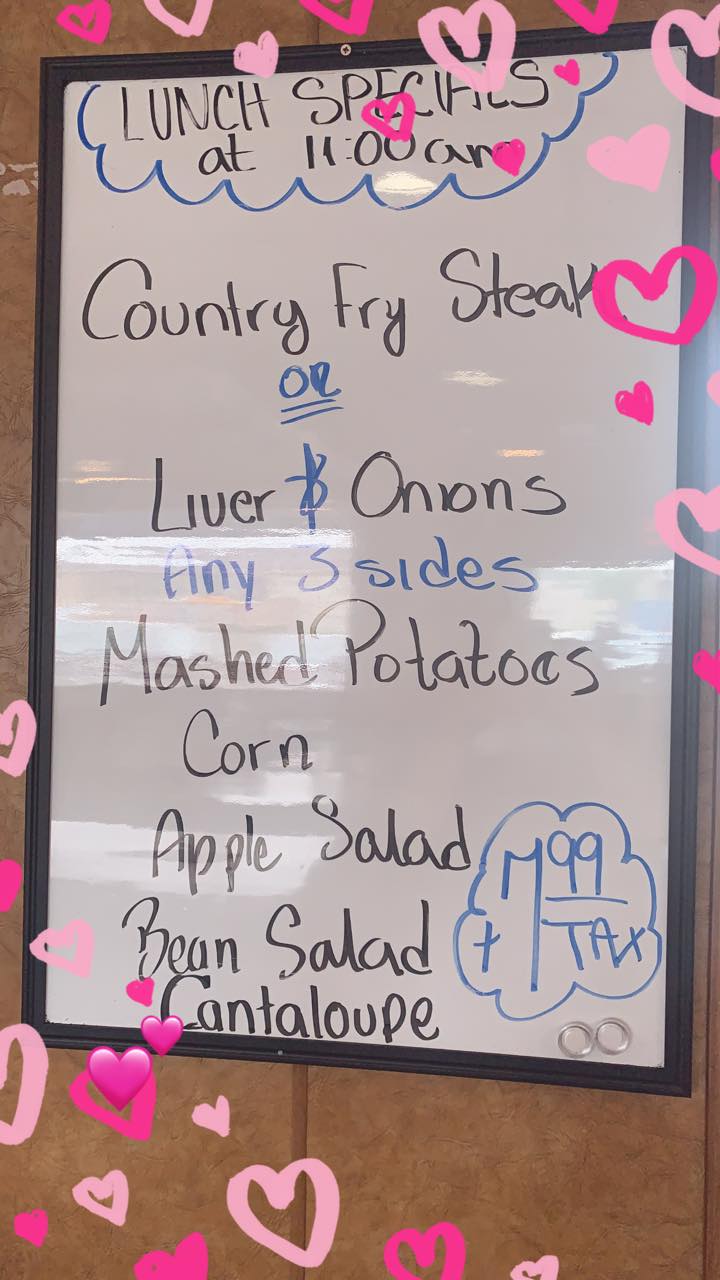 LUNCH SPECIALS
at 11:00 am
Country Fry Steak
OR
Liver & Onions
Any 3 sides
Mashed Potatoes
Corn
Apple Salad
Bean Salad
Cantaloupe
99
+ TAX